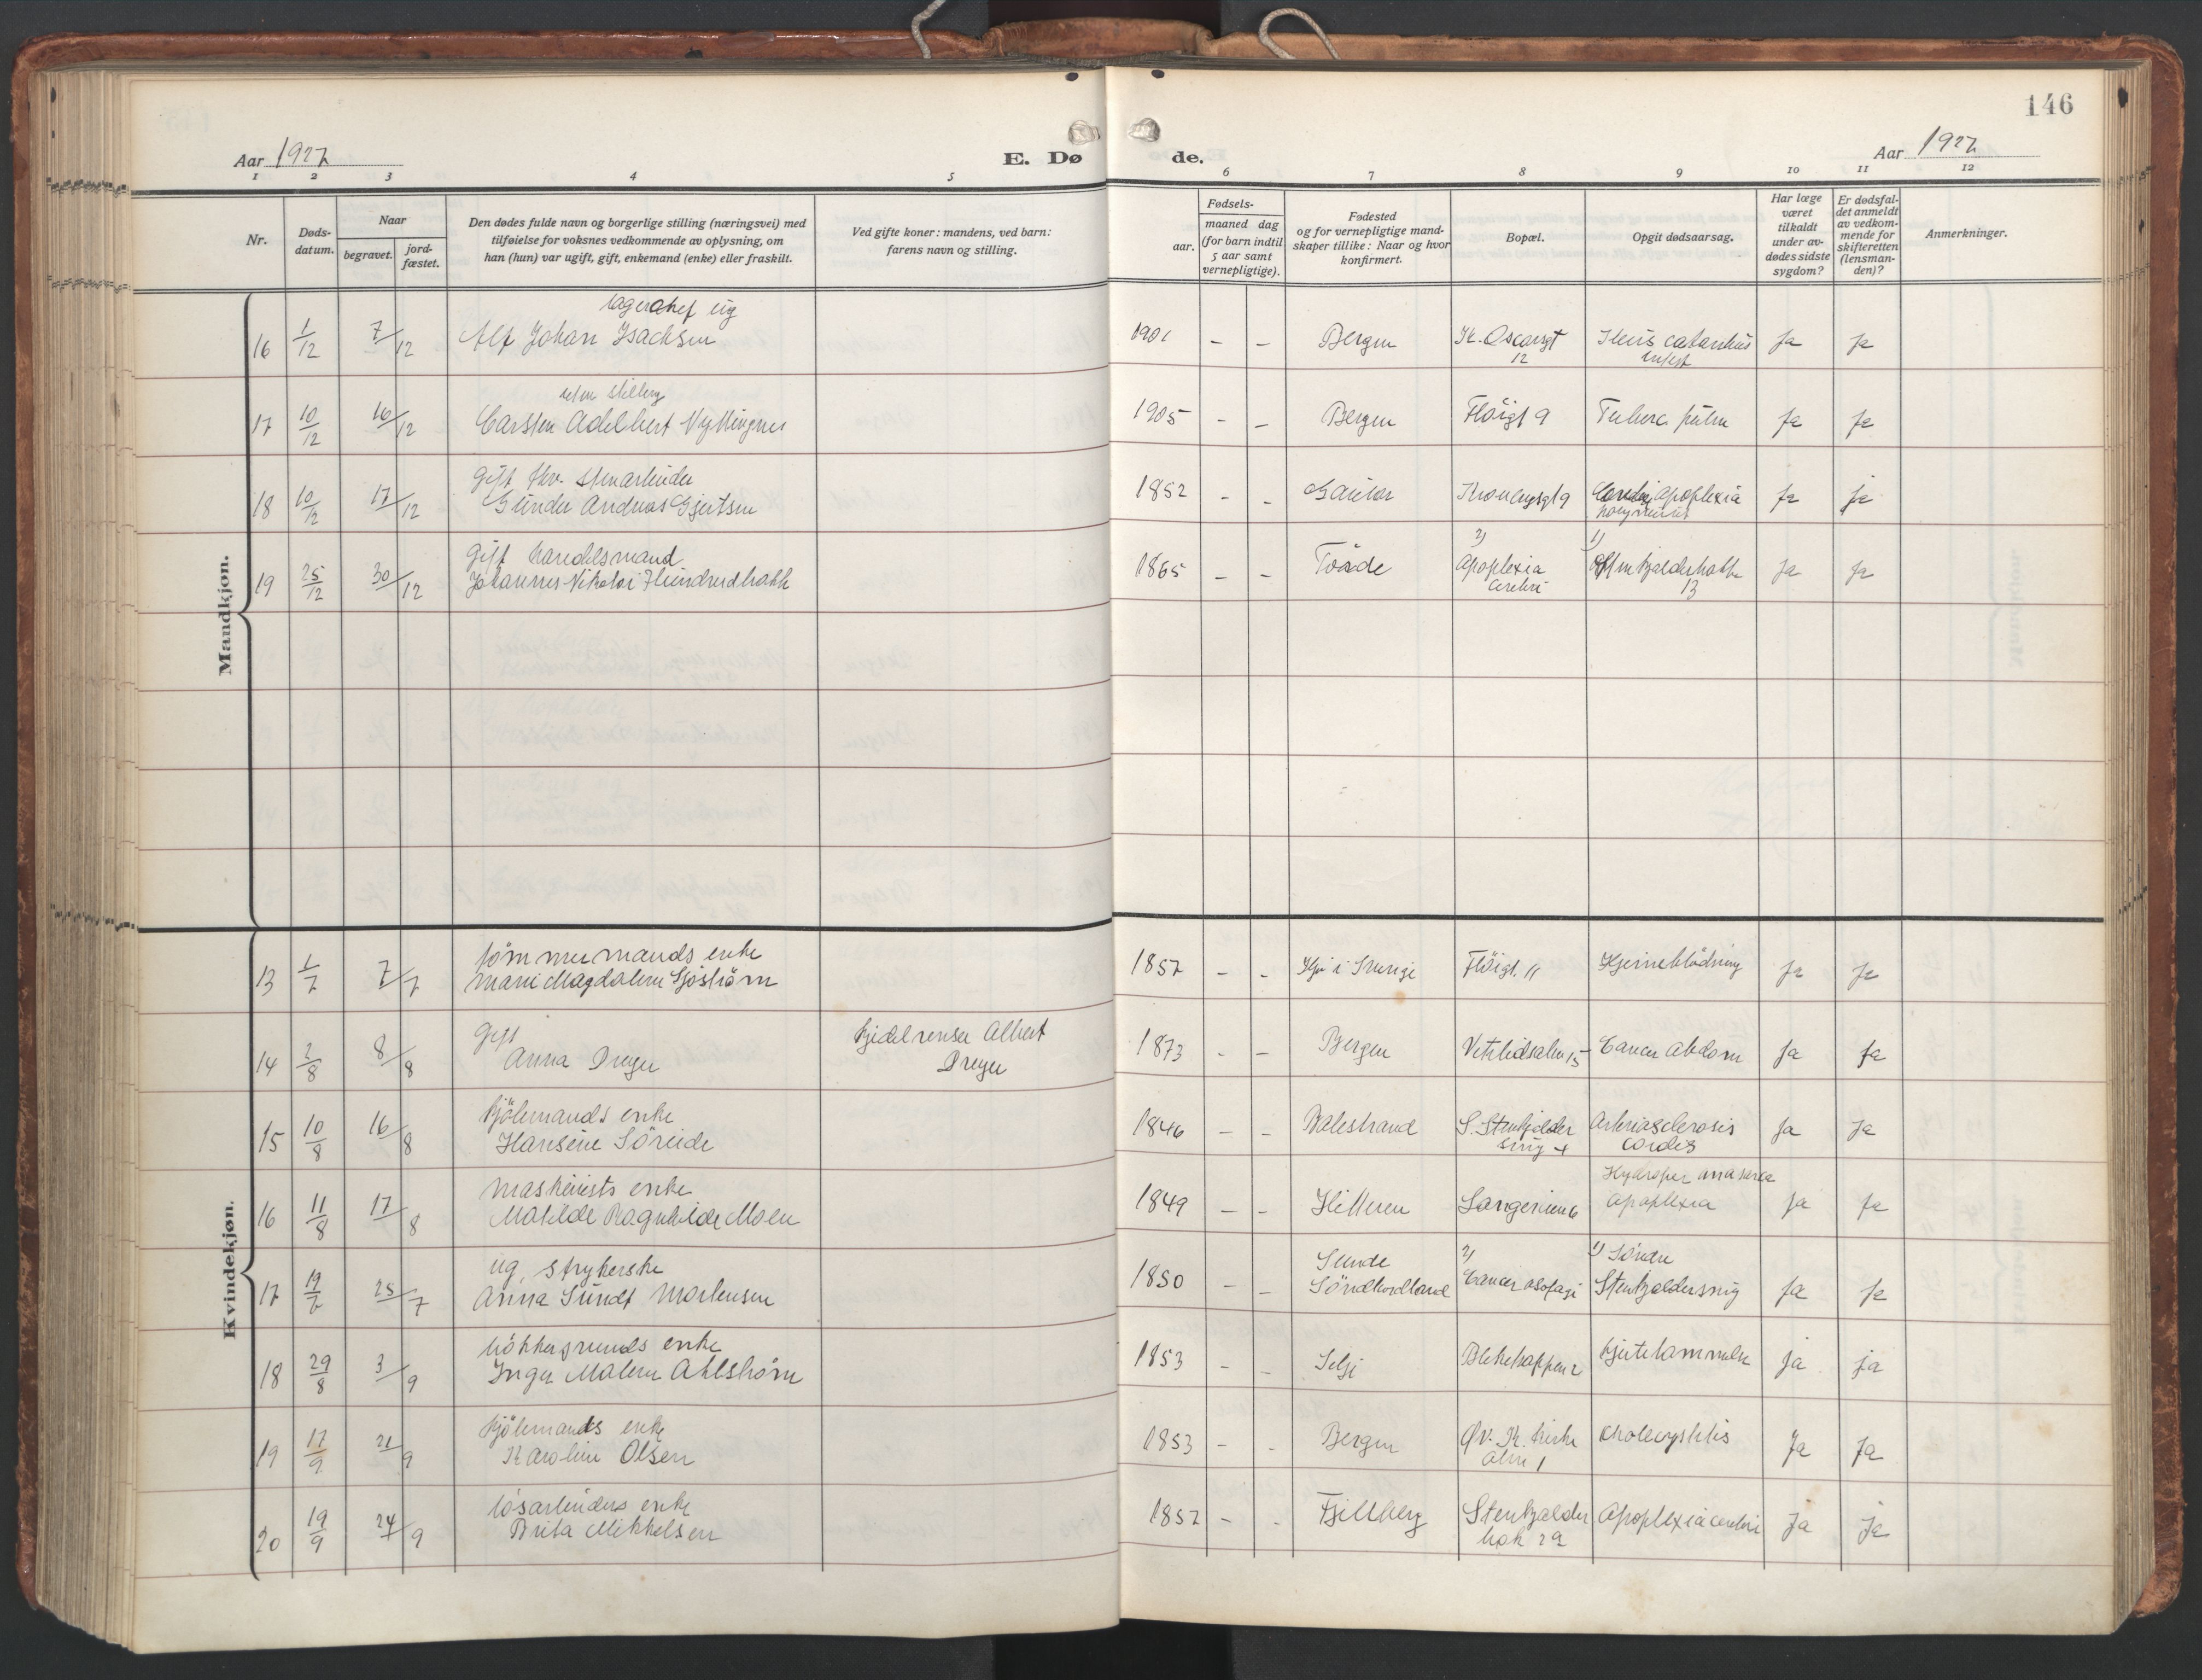 146
Aar 1927
E. Døde.
Aar 1927
1 2 3 4 5 6 7 8 9 10 11 12
Nr.
Dødsdatum.
Naar
begravet.
jordfæstet.
Den dødes fulde navn og borgerlige stilling (næringsvei) med
tilføielse for voksnes vedkommende av oplysning, om
han (hun) var ugift, gift, enkemand (enke) eller fraskilt.
Ved gifte koner: mandens, ved barn:
farens navn og stilling.
Fødsels-
aar.
maaned dag
(for barn indtil
5 aar samt
vernepligtige).
Fødested
og for vernepligtige mand-
skaper tillike: Naar og hvor
konfirmert.
Bopæl.
Opgit dødsaarsag.
Har læge
været
tilkaldt
under av-
dødes sidste
sygdom?
Er dødsfal-
det anmeldt
av vedkom-
mende for
skifteretten
(lensman-
den)?
Anmerkninger.
Mandkjøn.
lagerchef ug
16 1/12 7/12 Alf Johan Isachsen 1901 - - Bergen K. Oscarsgt 12 Ja Ja
uten stilling
17 10/12 16/12 Carsten Adelbert 1905 - - Bergen Fløigt 9 Ja Ja
gift fhv. stenarbeider
18 10/12 17/12 Gunder Andreas Gjertsen 1852 - - Gaular 9 apoplexia Ja Ja
gift handelsmand
19 25/12 30/12 Johannes Nikolai 1865 - - 2) Apoplexia cerebri 1) 13 Ja Ja
Kvindekjøn.
tømmermands enke
13 1/7 7/7 Marie Magdalene Sjøstrøm 1857 - - Fløigt. 11 Hjerneblødning Ja Ja
gift
14 2/8 8/8 Anna Dreyer Kjedelrenser Albert Dreyer 1873 - - Bergen Vetrlidsalm 15 Cancer Abdom Ja Ja
kjølemands enke
15 10/8 16/8 Hansine Søreide 1846 - - Balestrand S. Stenkjelder smug 4 Arteriosclerosis cordis Ja Ja
maskinists enke
16 11/8 17/8 Matilde Ragnhilde Moen 1849 - - Hitteren 6 Hydrops anasarca apoplexia Ja Ja
ug. strykerske
17 19/7 25/7 Anna Sundt Mortensen 1850 - - Sunde Søndhordland 2) Cancer øsofagi 1) Søndre Stenkjeldersmug Ja Ja
bøkkersvends enke
18 29/8 3/9 Inger Malene Ahlstrøm 1853 - - Selje Blekebakken 2 Hjertelammelse ja ja
kjølemands enke
19 17/9 21/9 Karoline Olsen 1853 - - Bergen Øv. K. kirke alm 1 Cholecystitis Ja Ja
løsarbeiders enke
20 19/9 24/9 Brita Mikkelsen 1857 - - Fjelberg Stenkjelder bak 29 Apoplexia cerebri Ja Ja